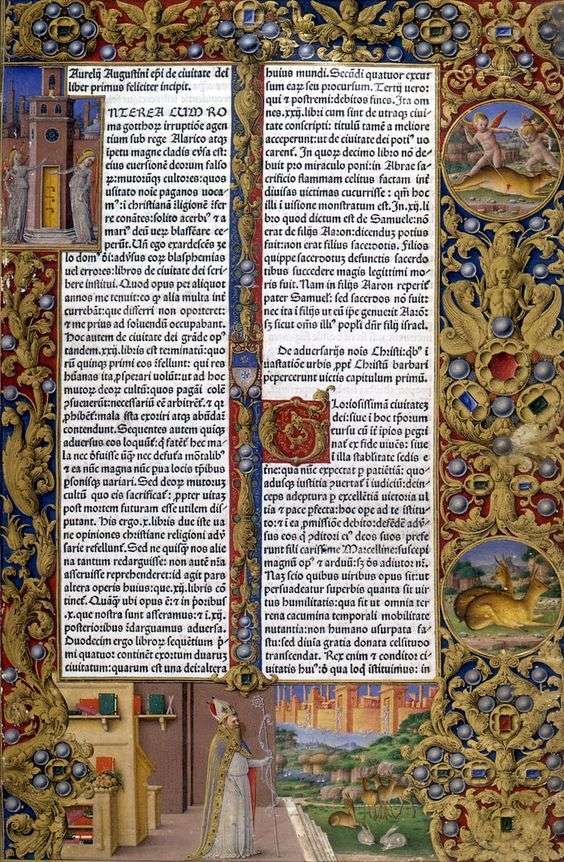 Aurelij Augustini epi de ciuitate dei
liber primus feliciter incipit.
INTEREA CUM RO
ma gotthorũ irruptiõe agen
tium sub rege Alarico atqȝ
ipetu magne cladis euersa est:
eius euersionẽ deorum falso
rũ:mutorũqȝ cultores: quos
usitato noĩe paganos uoca
m⁹:i christianã religionẽ refer
re conãtes: solito acerbi⁹ & a
mari⁹ deũ uerũ blasfemare ce
perũt. Un ego exardescẽs ze
lo dom⁹ di: aduersus eorũ blasphemias
uel errores: libros de ciuitate dei scri
bere institui. Quod opus per aliquot
annos me tenuit: eo qȝ alia multa int
currebãt: que differri non oporteret:
& me prius ad soluendũ occupabant.
Hoc autem de ciuitate dei grãde op⁹
tandem .xxij. libris est terminatũ: quo
rũ quinqȝ primi eos refellunt: qui res
hũanas ita psperari uolũt: ut ad hoc
mutorũ deorũ cultũ: quos pagãi cole
re consueuerũt: necessariũ eẽ arbitrẽt: & qȝ
phibẽt: mala ista exoriri atqȝ abũdare
contendunt. Sequentes autem quiqȝ
aduersus eos loquunt: qui fatẽt hec ma
la nec defuisse ũqȝ nec defutura mortalib⁹
& ea nũc magna nũc pua locis tpibus
psonisqȝ uariari. Sed deorũ mutorũ
cultũ quo eis sacrificat: ppter uitam
post mortem futuram esse utilem dis
putant. His ergo .x. libris due iste ua
ne opiniones christiane religioni adu
sarie refellunt. Sed ne quisqȝ nos alie
na tantum redarguisse: non autẽ nra
asseruisse reprehenderet: id agit pars
altera operis huius: que .xij. libris cõ
tinet. Quãqȝ ubi opus ẽ: & in porib⁹
.x. que nostra sunt asseramus: & i .xij.
posterioribus redarguamus aduersa.
Duodecim ergo librorũ sequẽtium p
mi quatuor continẽt exortum duarũ
ciuitatum: quarum est una dei: altera
huius mundi. Secũdi quatuor excur
sum earũ seu procursum. Tertij uero:
qui & postremi: debitos fines. Ita om
nes .xxij. libri cum sint de utraqȝ ciui
tate conscripti: titulũ tamẽ a meliore
acceperunt: ut de ciuitate dei poti⁹ uo
carent. In quorũ decimo libro nõ de
buit pro miraculo poni: in Abrae sa
crificio flammam celitus factam int
diuisas uictimas cucurrisse: qm̃ hoc
illi i uisione monstratum est. In .xij. li
bro quod dictum est de Samuele: nõ
erat de filijs Aaron: dicendũ potius
fuit: non erat filius sacerdotis. Filios
quippe sacerdotum defunctis sacerdo
tibus succedere magis legittimi mo
ris fuit. Nam in filijs Aaron reperit
pater Samuel: sed sacerdos nõ fuit:
nec ita i filijs ut eũ ipe genuerit Aarõ:
sȝ sicut oms illi⁹ popli dnr filij israel.
De aduersarijs nois Christi: qb⁹ i
uastatiõne urbis ppt Christũ barbari
pepercerunt uictis capitulum primũ.
Gloriosissimã ciuitatẽ
dei: siue i hoc tporum
cursu cũ it ipios pegri
nat ex fide uiuẽs: siue
i illa stabilitate sedis e
terne: quã nunc expectat p patiẽtiã: quo
adusqȝ iustitia quertat i iudiciũ: dein
ceps adeptura p excellẽtiã uictoria ul
tia & pace pfecta: hoc ope ad te istitu
to: & i ea pmissiõe debito: defẽde adu
sus eos qui cõditori ei⁹ deos suos prefe
runt fili carissime Marcelline: suscepi
magnũ op⁹ & arduũ: sȝ de⁹ adiutor nr.
Nã scio quibus uiribus opus sit: ut
persuadeatur superbis quanta sit uir
tus humilitatis: qua fit ut omnia ter
rena cacumina temporali mobilitate
nutantia: non humano usurpata fa
stu: sed diuia gratia donata celsitudo
transcendat. Rex enim & conditor ci
uitatis hui⁹: de qua loqui istituimus: in